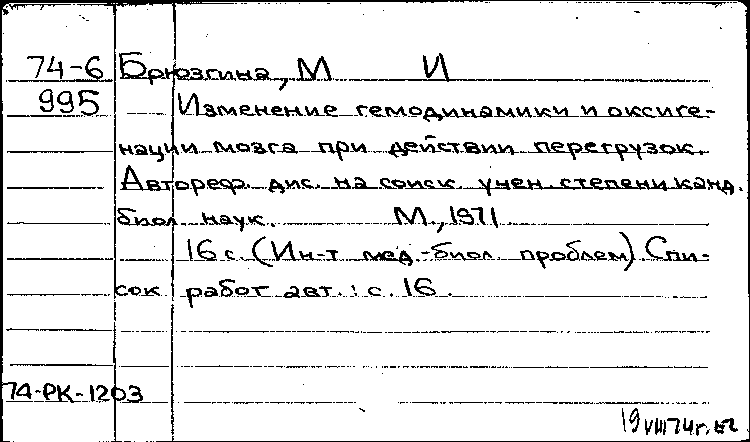 74-6 Брюзгина, М И
995 Изменение гемодинамики и оксиге-
нации мозга при действии перегрузок.
Автореф. дис. на соиск. учен. степени канд.
биол. наук. М., 1971
16 с. (Ин-т мед.-биол. проблем). Спи-
сок работ авт.: с. 16.
74-РК-1203
19 VIII 74 г.